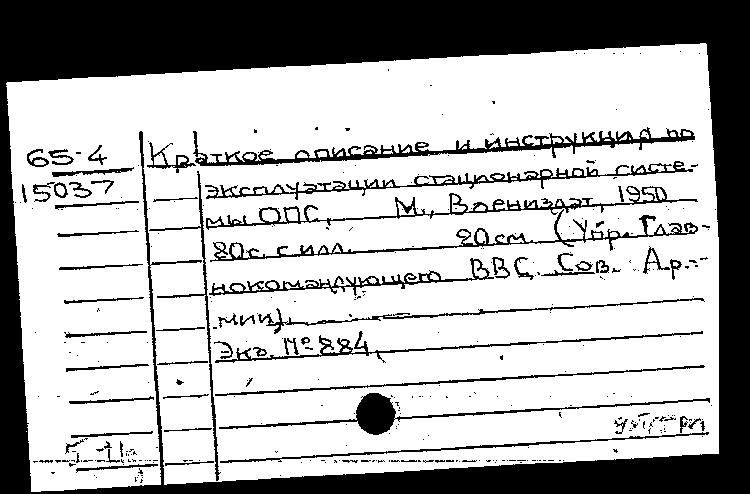 65-4 Краткое описание и инструкция по
15037 эксплуатации стационарной систе-
мы ОПС, М., Воениздат, 1950
80с. с илл. 20см (Упр. Глав-
нокомандующего ВВС Сов. Ар.-
мии).
Экз. № 884,